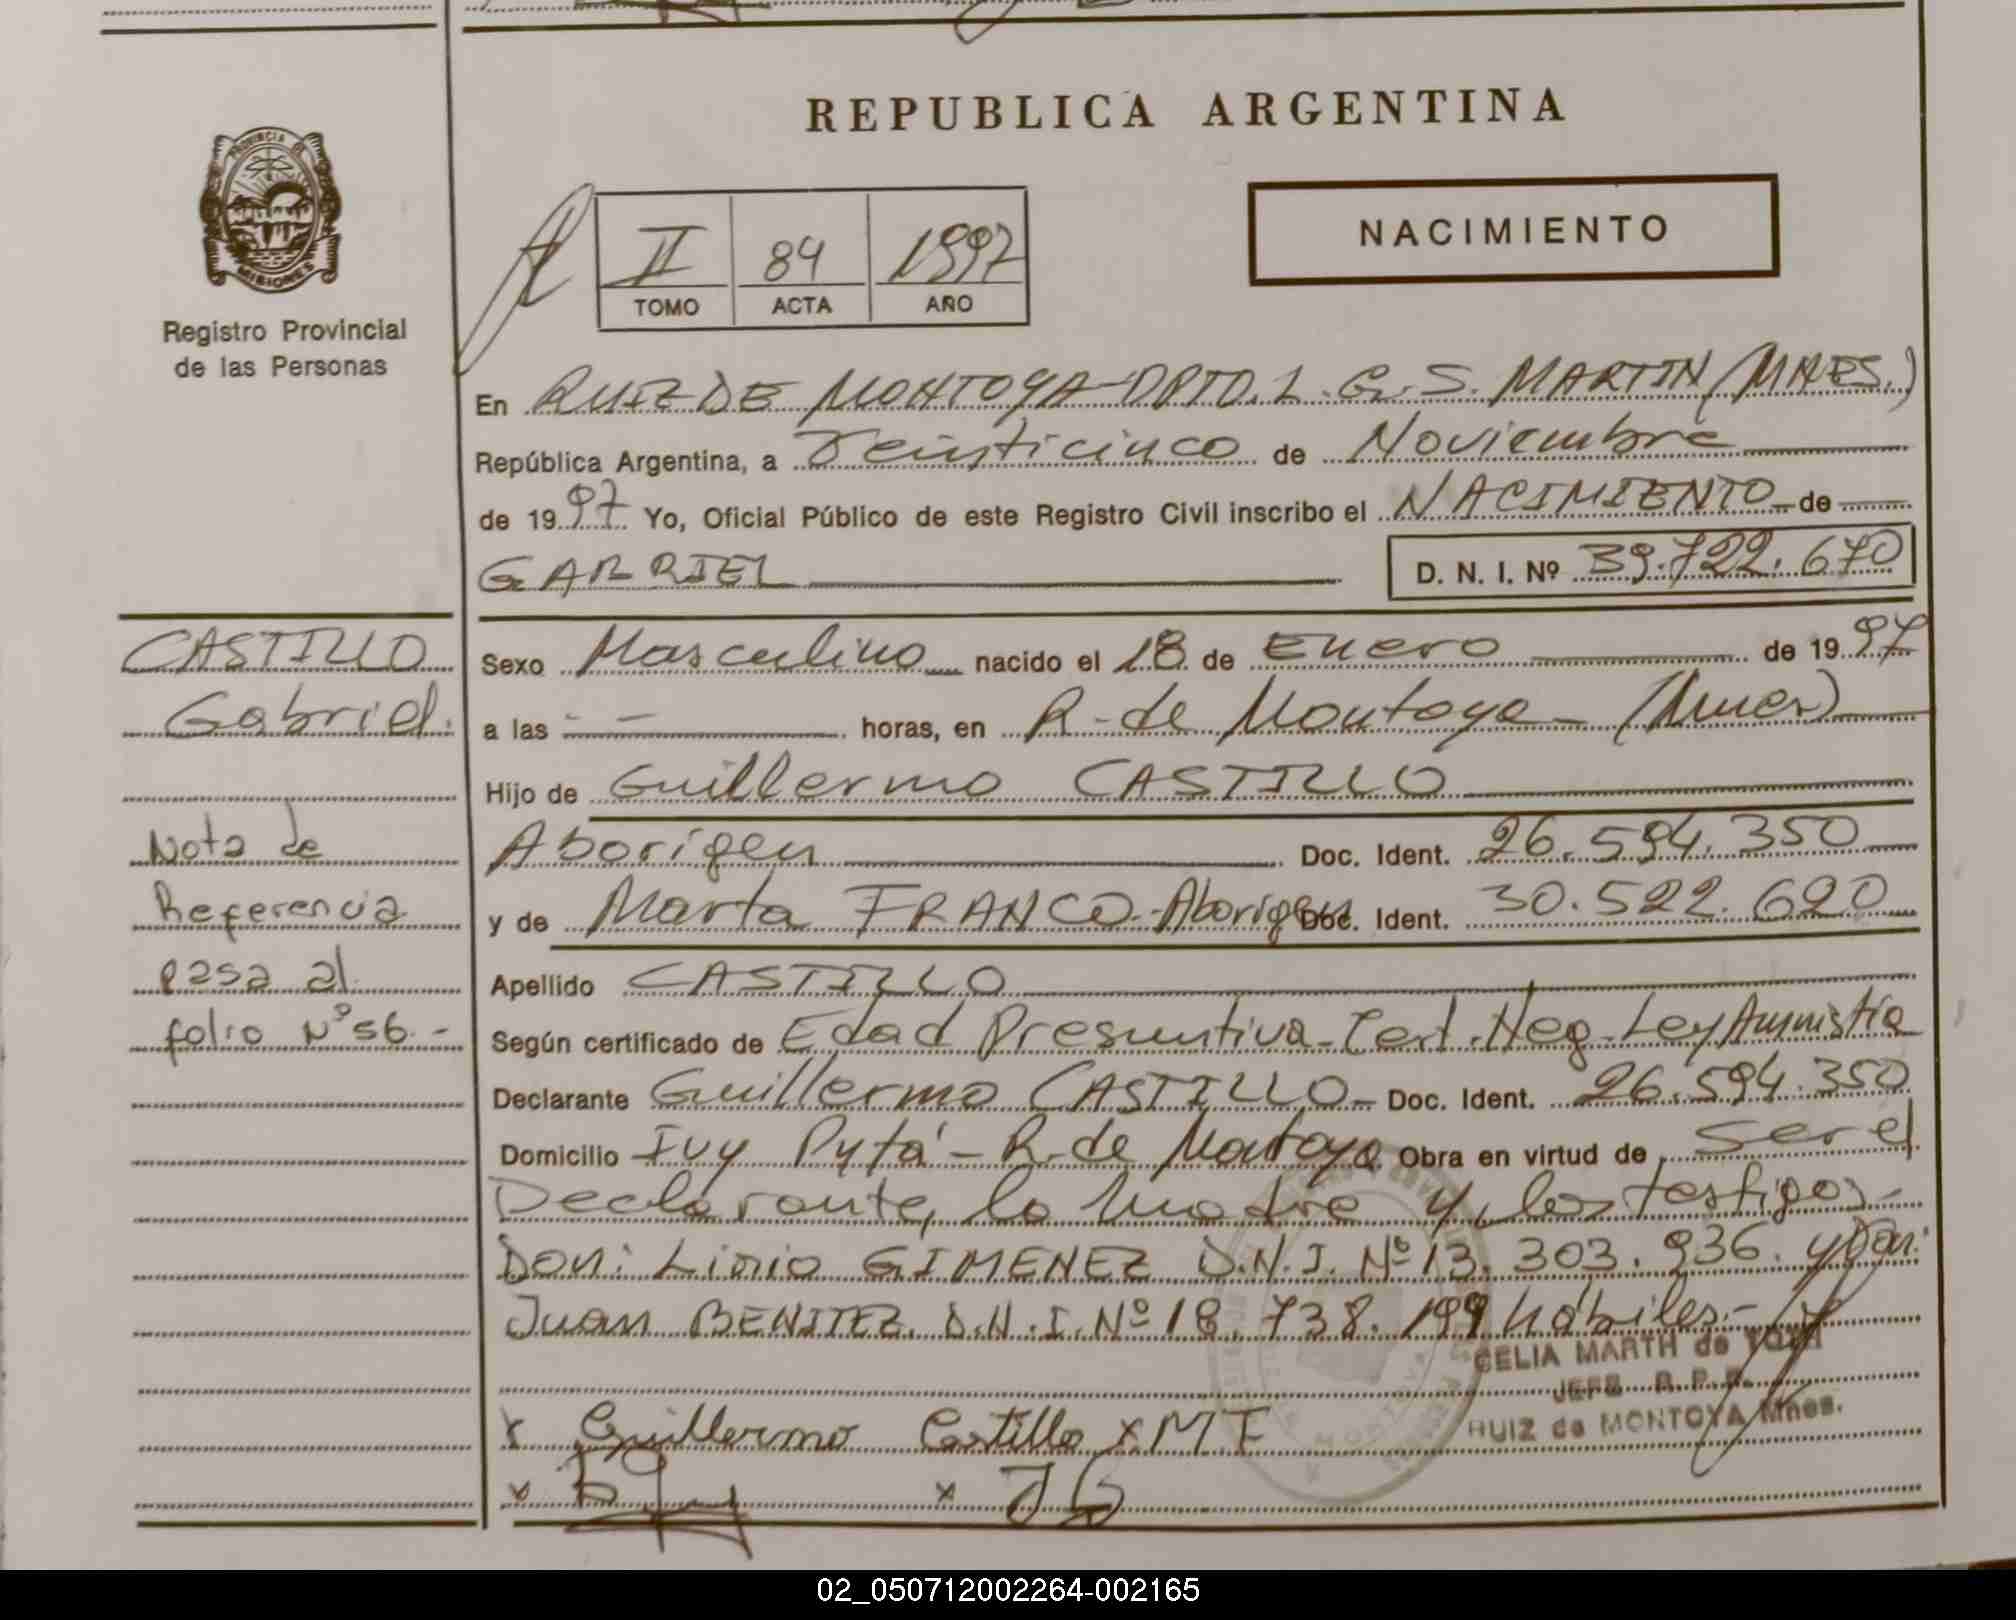 REPUBLICA ARGENTINA
PROVINCIA DE
MISIONES
Registro Provincial
de las Personas
II 84 1997
TOMO ACTA AÑO
NACIMIENTO
En RUIZ DE MONTOYA-DPTO. L. G. S. MARTIN (MNES.)
República Argentina, a Veinticinco de Noviembre
de 1997 Yo, Oficial Público de este Registro Civil inscribo el NACIMIENTO de
GABRIEL D. N. I. Nº 39.722.670
CASTILLO
Gabriel.
Nota de
Referencia
pasa al
folio Nº 56.-
Sexo Masculino nacido el 18 de Enero de 1997
a las - — horas, en R. de Montoya - (Mnes)
Hijo de Guillermo CASTILLO
Aborigen Doc. Ident. 26.594.350
y de Marta FRANCO-Aborigen Doc. Ident. 30.522.690
Apellido CASTILLO
Según certificado de Edad Presuntiva-Cert. Neg-Ley Amnistia
Declarante Guillermo CASTILLO- Doc. Ident. 26.594.350
Domicilio Ivy Pytá - R. de Montoya Obra en virtud de ser el
Declarante, la madre y los testigos-
Don: Lirio GIMENEZ D.N.I. Nº 13.303.936. y Don:
Juan BENITEZ D.N.I. Nº 18.738.199 hábiles.-
CELIA MARTH de
JEFE R. P. P.
RUIZ de MONTOYA Mnes.
x Guillermo Castillo x M F
x x J G
02_050712002264-002165